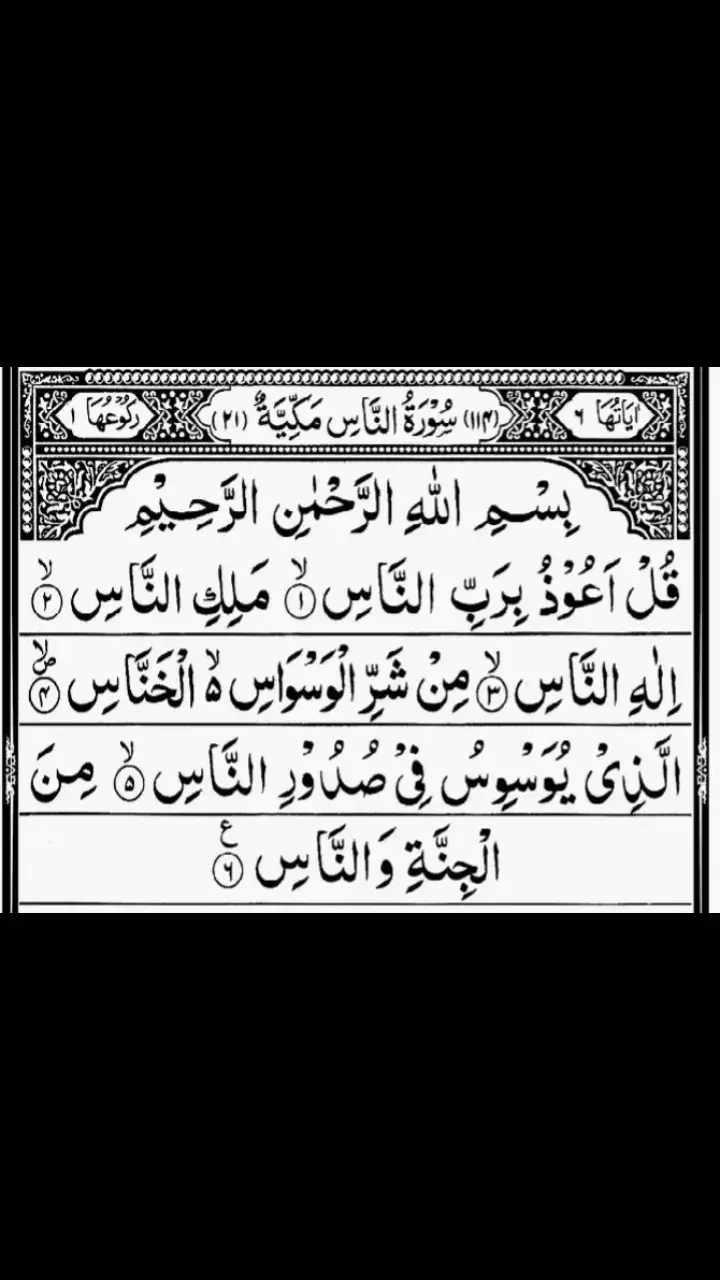 اٰيَاتُهَا ٦ (١١٤) سُوْرَةُ النَّاسِ مَكِّيَّةٌ (٢١) رُكُوْعُهَا ١
بِسْمِ اللّٰهِ الرَّحْمٰنِ الرَّحِيْمِ
قُلْ اَعُوْذُ بِرَبِّ النَّاسِ ۙ﴿١﴾ مَلِكِ النَّاسِ ۙ﴿٢﴾
اِلٰهِ النَّاسِ ۙ﴿٣﴾ مِنْ شَرِّ الْوَسْوَاسِ ۙ۬ الْخَنَّاسِ ۪ۙ﴿۴﴾
الَّذِیْ يُوَسْوِسُ فِیْ صُدُوْرِ النَّاسِ ۙ﴿۵﴾ مِنَ
الْجِنَّةِ وَالنَّاسِ ﴿٦﴾ ع